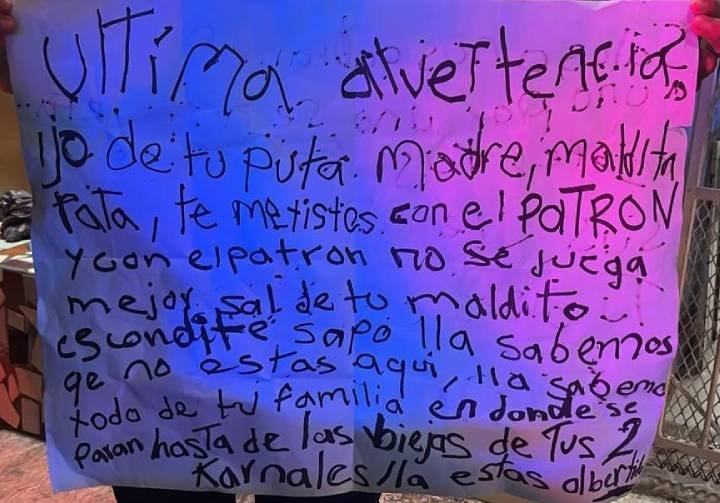 Ultima advertencia
ijo de tu puta madre, maldita
rata, te metistes con el PATRON
y con el patron no se juega
mejor sal de tu maldito
escondite sapo lla sabemos
qe no estas aqui, lla sabemo
todo de tu familia en donde se
paran hasta de las biejas de Tus 2
Karnales lla estas